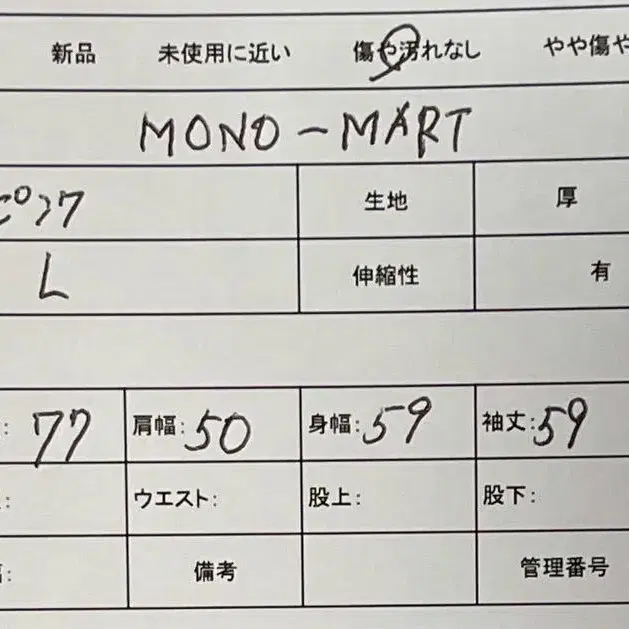 新品 未使用に近い 傷や汚れなし やや傷や
MONO-MART
ピンク 生地 厚
L 伸縮性 有
: 77 肩幅: 50 身幅: 59 袖丈: 59
: ウエスト: 股上: 股下:
: 備考 管理番号